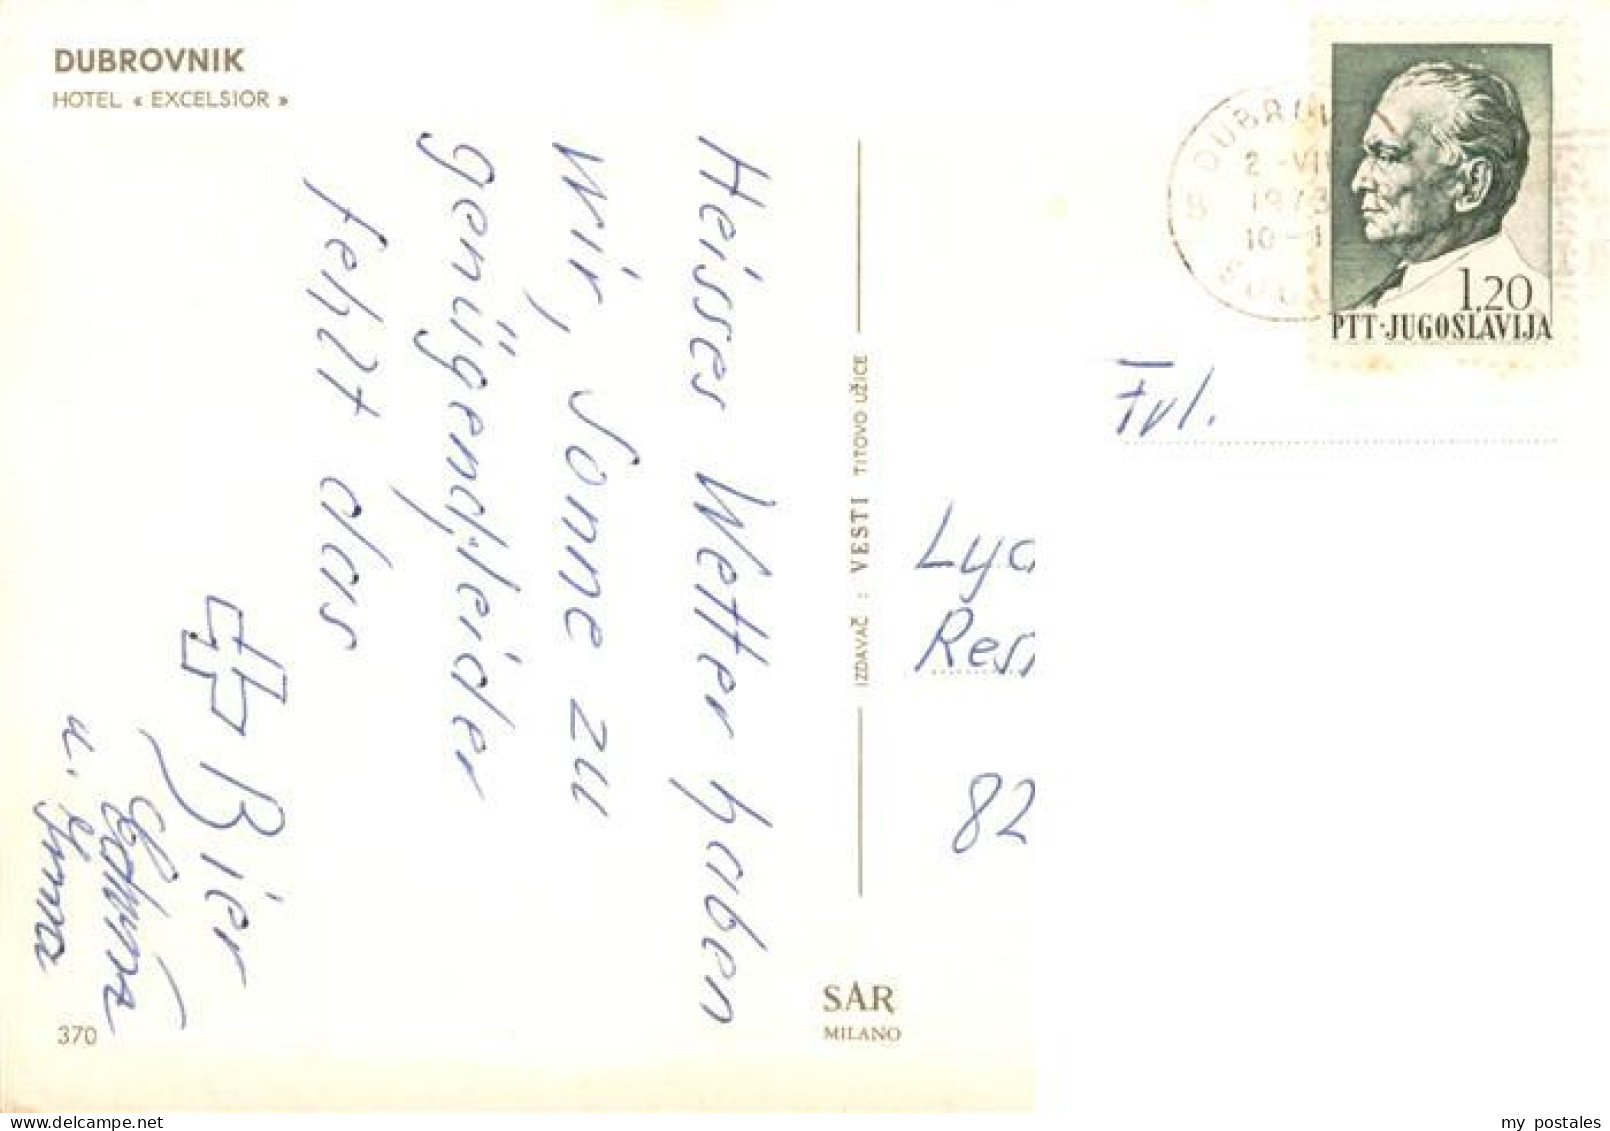 DUBROVNIK
HOTEL « EXCELSIOR »
Heisses Wetter haben
Wir, Sonne zu
genügend, leider
fehlt das
Bier
u. Irma
370
IZDAVAČ : VESTI TITOVO UŽICE
SAR
MILANO
DUBROV
2 -VII
1973
10-1
1,20
PTT-JUGOSLAVIJA
Frl.
Lyd
Resi
82
my postales